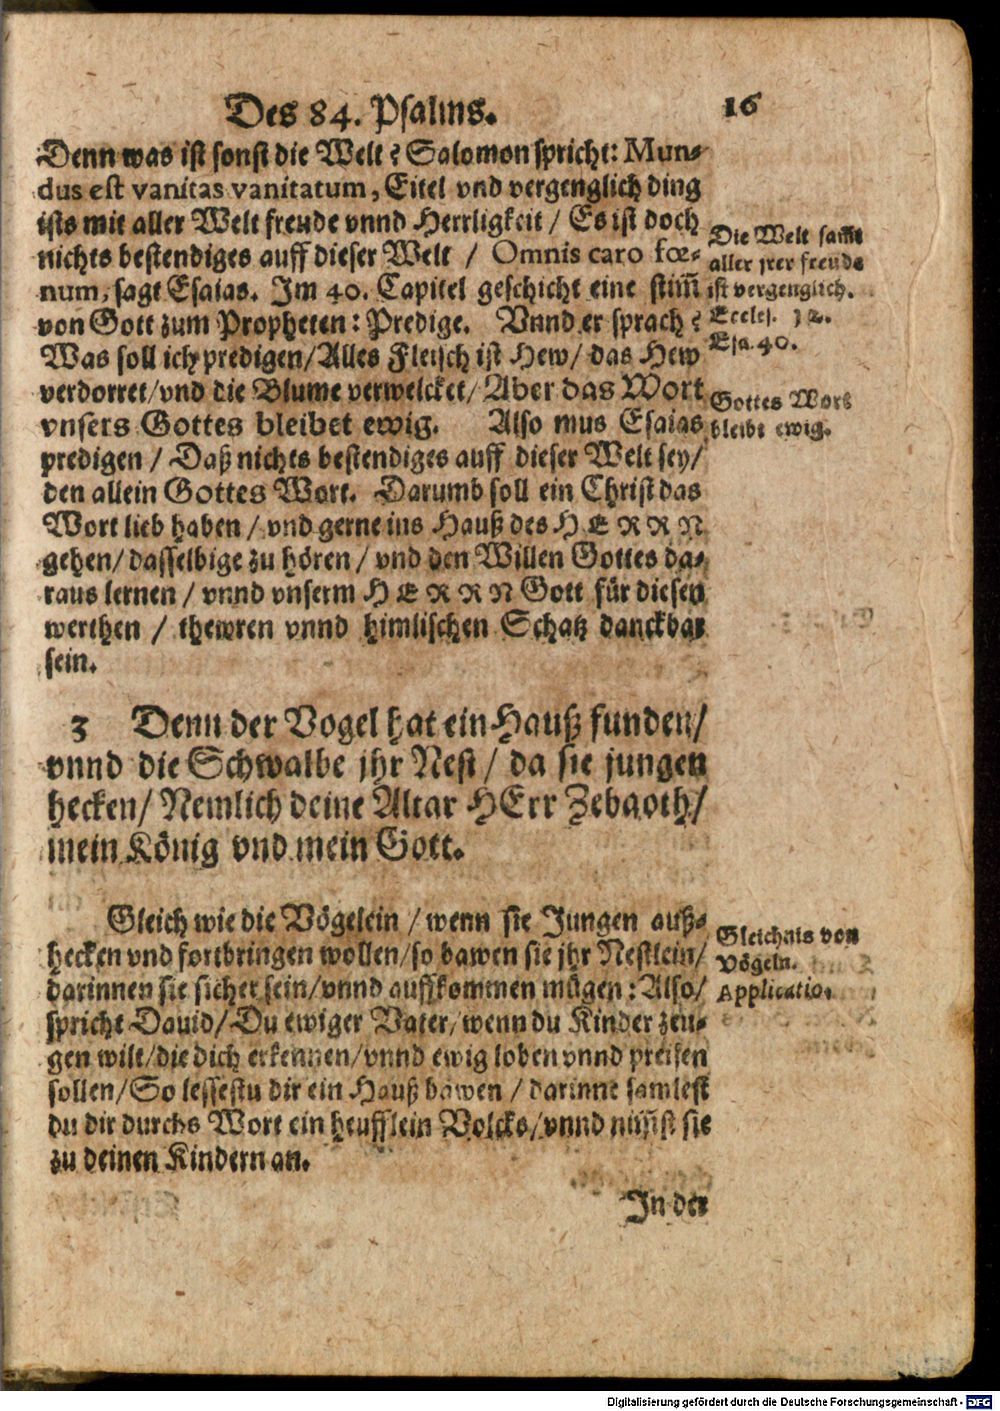 Des 84. Psalms.
16
Denn was ist sonst die Welt? Salomon spricht: Mun-
dus est vanitas vanitatum, Eitel vnd vergenglich ding
ists mit aller Welt freude vnnd Herrligkeit / Es ist doch
nichts bestendiges auff dieser Welt / Omnis caro fœ-
num, sagt Esaias. Im 40. Capitel geschicht eine stim̃
von Gott zum Propheten: Predige. Vnnd er sprach?
Was soll ich predigen/Alles Fleisch ist Hew/ das Hew
verdorret/vnd die Blume verwelcket/ Aber das Wort
vnsers Gottes bleibet ewig. Also mus Esaias
predigen / Daß nichts bestendiges auff dieser Welt sey/
den allein Gottes Wort. Darumb soll ein Christ das
Wort lieb haben / vnd gerne ins Hauß des HERRN
gehen/ dasselbige zu hören / vnd den Willen Gottes da-
raus lernen / vnnd vnserm HERRN Gott für diesen
werthen / thewren vnnd himlischen Schatz danckbar
sein.
Die Welt sam̃t
aller jrer freude
ist vergenglich.
Eccles. 12.
Esa. 40.
Gottes Wort
bleibt ewig.
3 Denn der Vogel hat ein Hauß funden/
vnnd die Schwalbe jhr Nest / da sie jungen
hecken/ Nemlich deine Altar HErr Zebaoth/
mein König vnd mein Gott.
Gleich wie die Vögelein / wenn sie Jungen auß-
hecken vnd fortbringen wollen/so bawen sie jhr Nestlein/
darinnen sie sicher sein/vnnd auffkommen mügen: Also/
spricht Dauid/Du ewiger Vater/wenn du Kinder zeu-
gen wilt/die dich erkennen/vnnd ewig loben vnnd preisen
sollen/So lessestu dir ein Hauß bawen / darinne samlest
du dir durchs Wort ein heufflein Volcks/vnnd nim̃st sie
zu deinen Kindern an.
Gleichnis von
Vögeln.
Applicatio.
In der
Digitalisierung gefördert durch die Deutsche Forschungsgemeinschaft - DFG